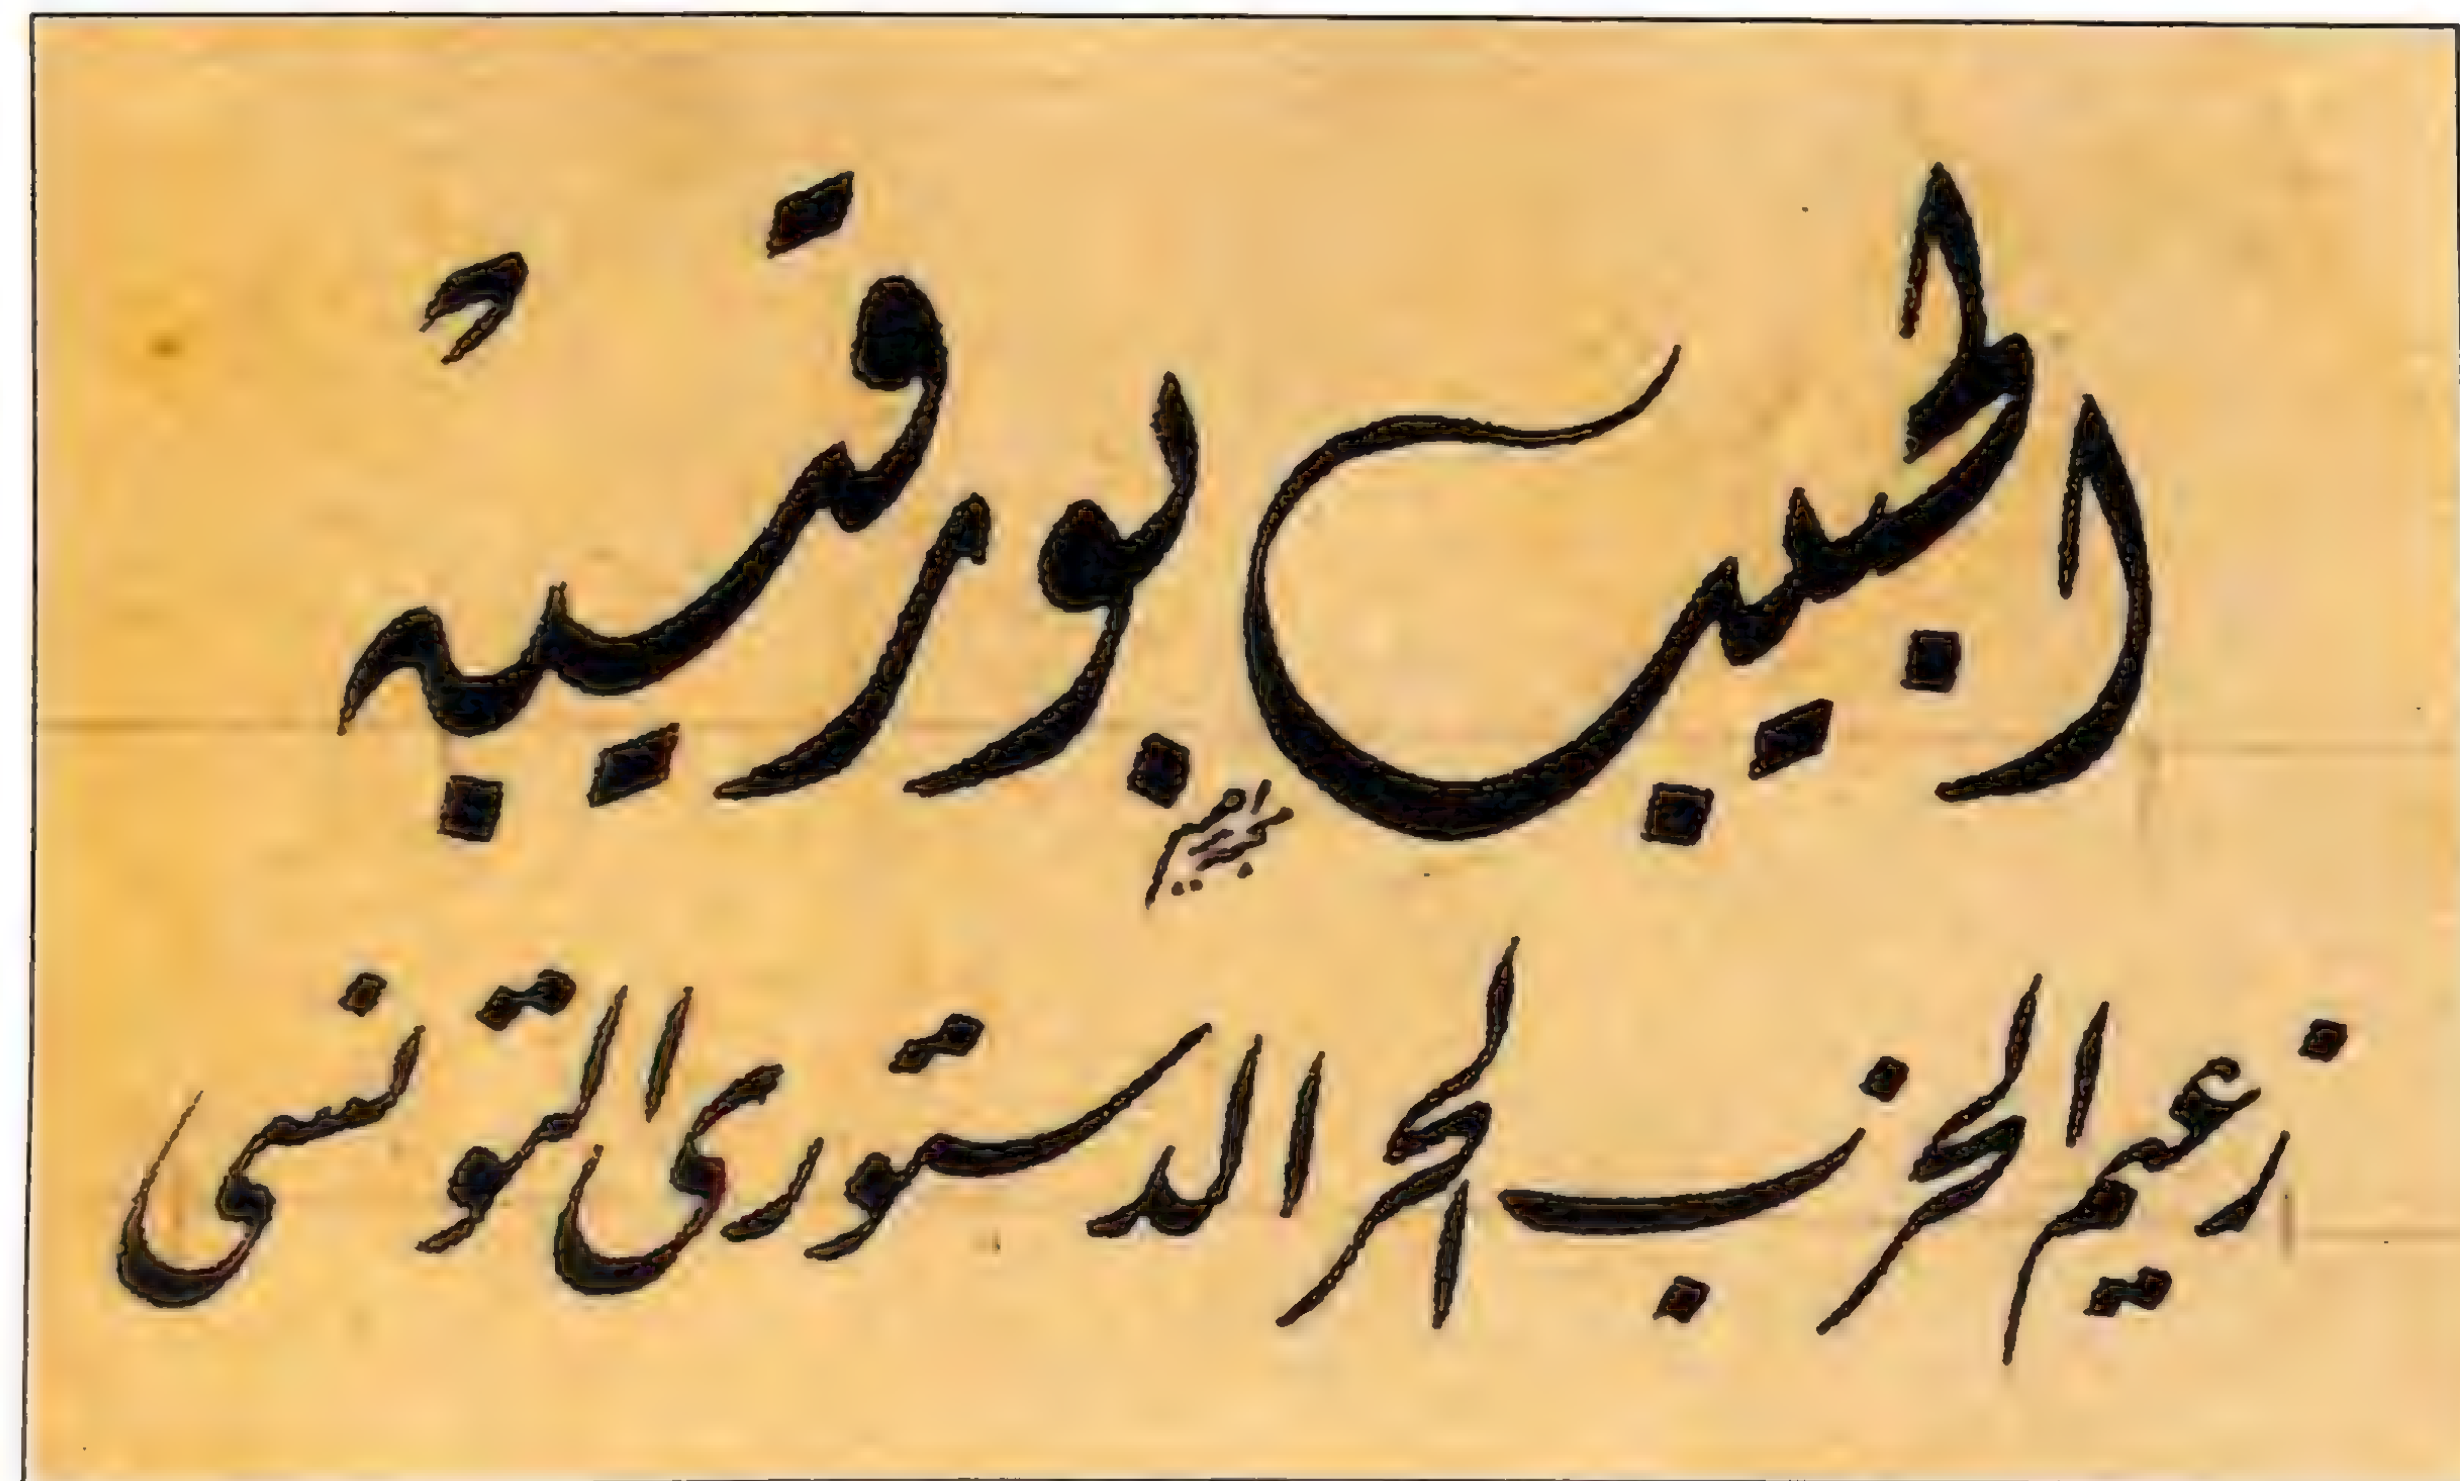 الحبيب بورقيبة
زعيم الحزب الحر الدستورى التونسى